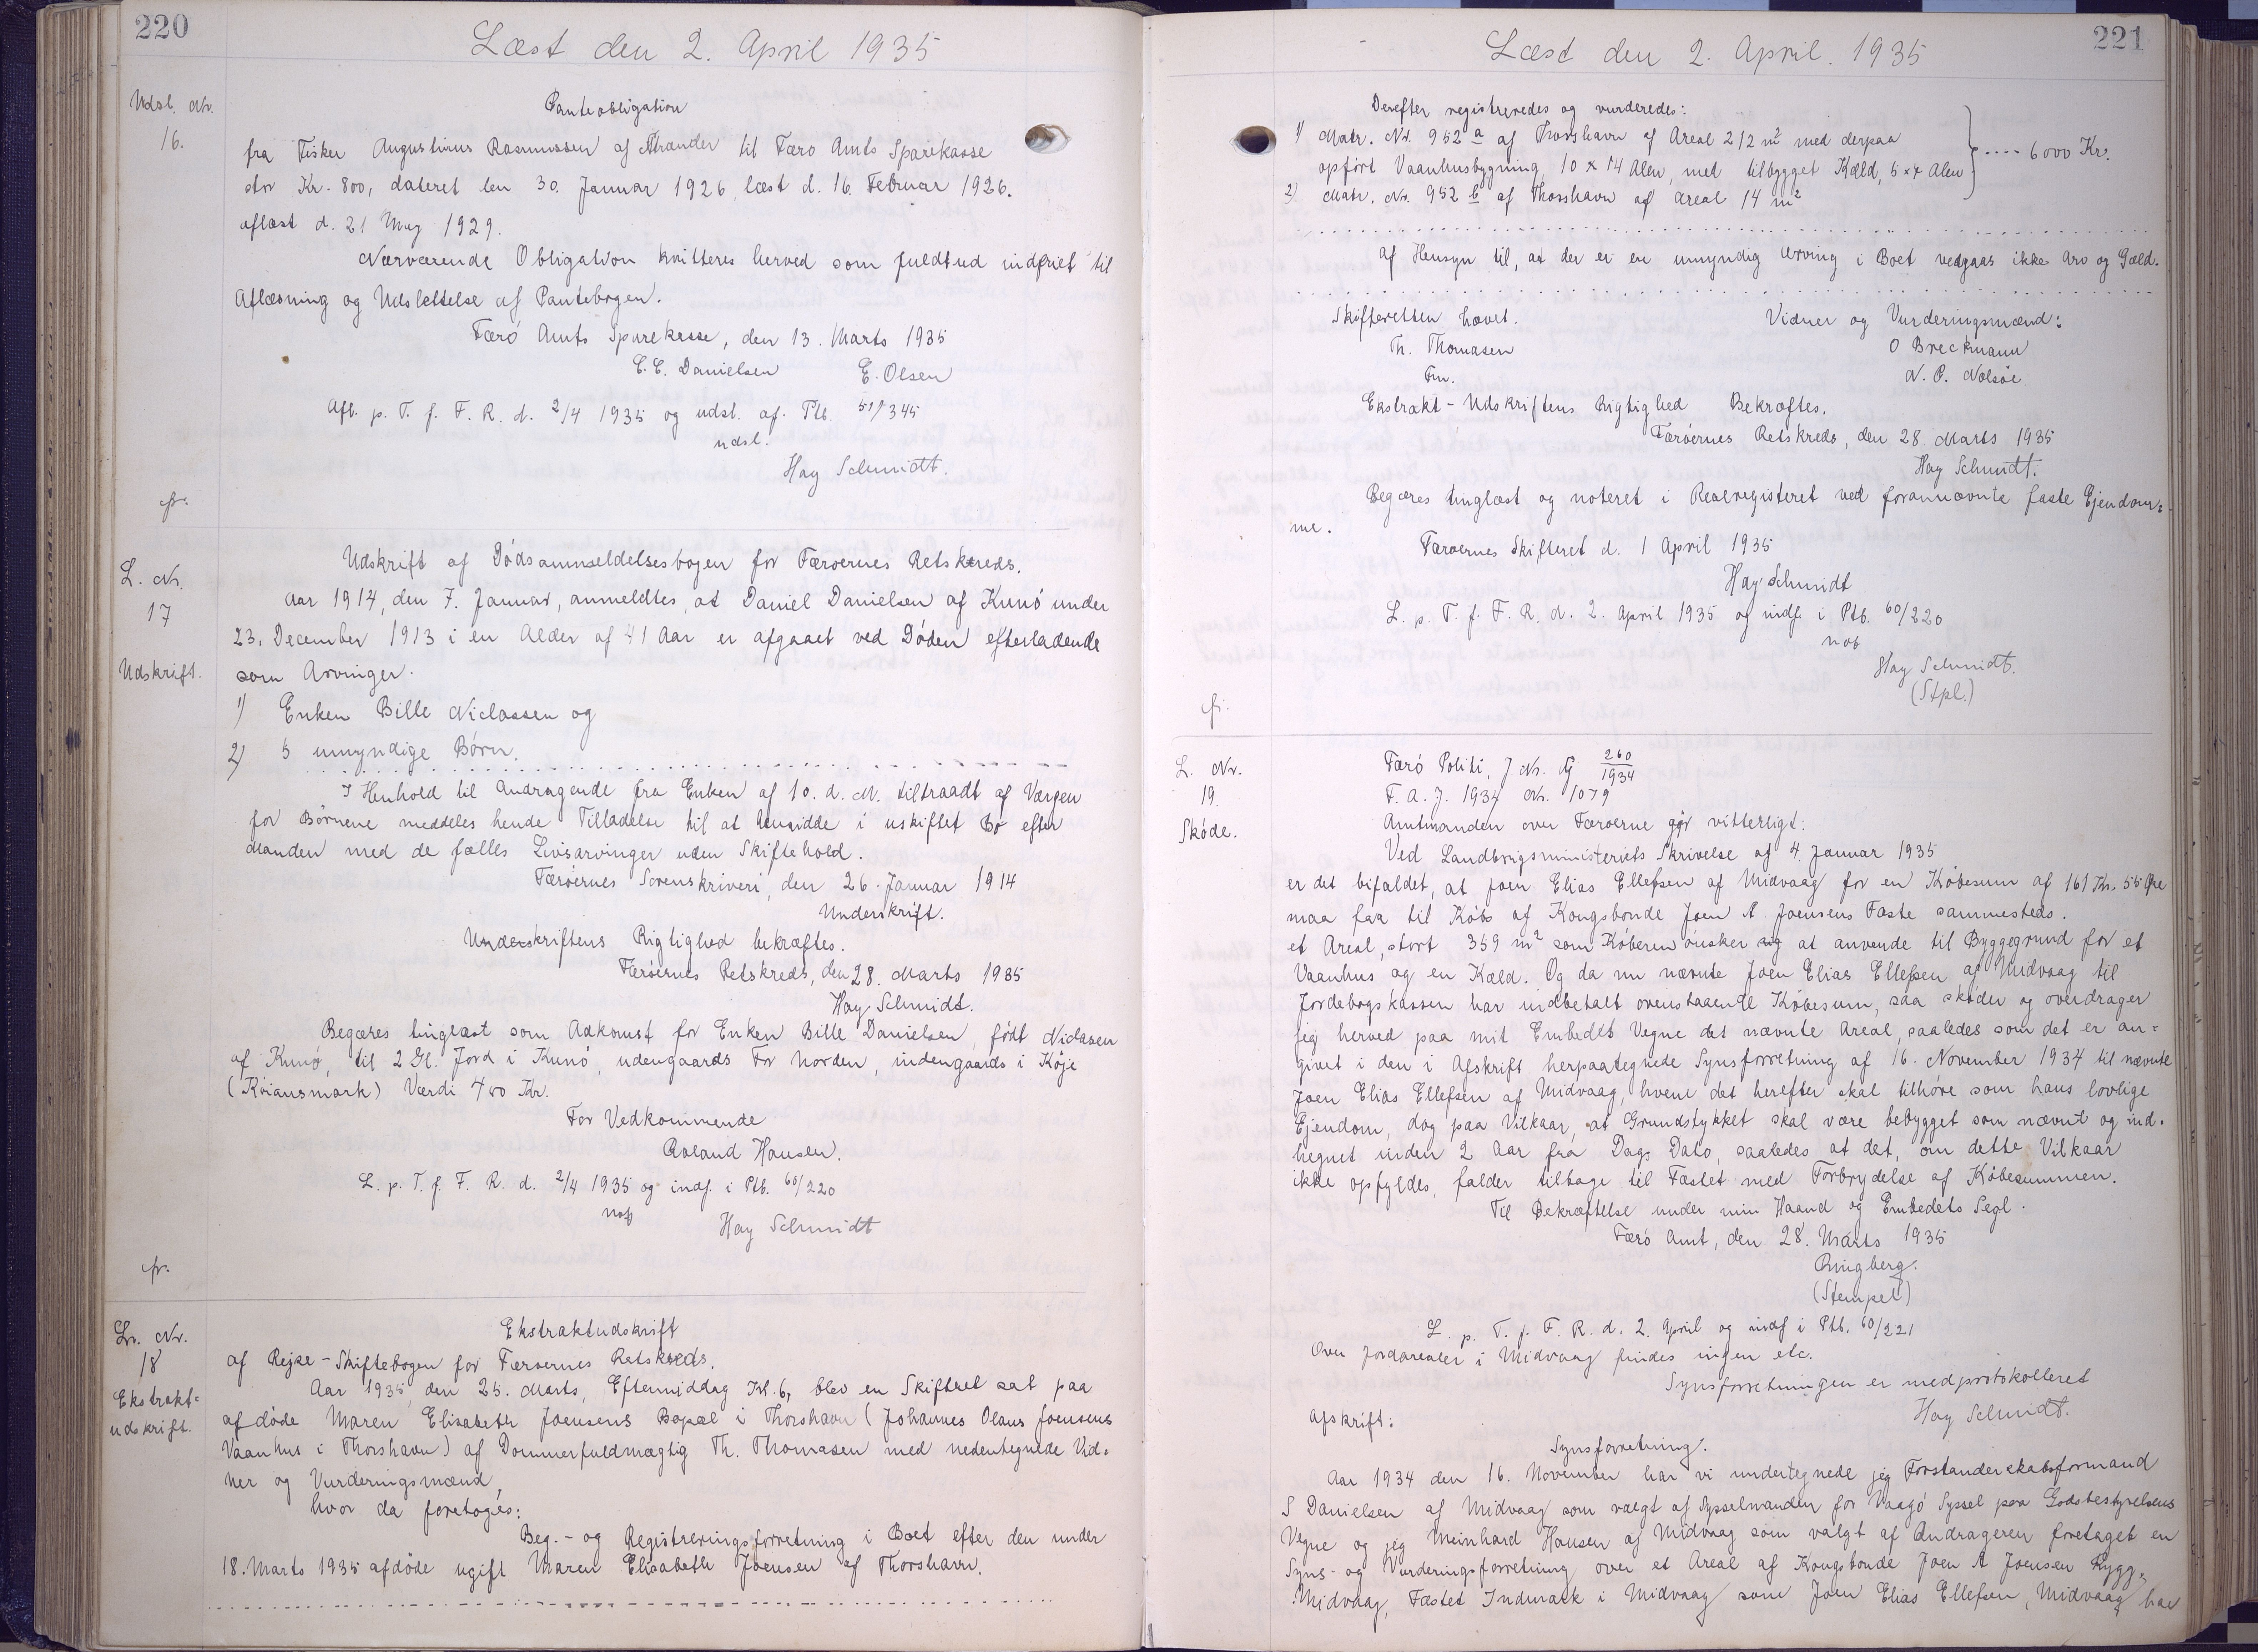 220
Læst den 2. April 1935
Udsl. Nr.
16.
Panteobligation
fra Fisker Augustinus Rasmussen af Strænder til Færø Amts Sparekasse
stor Kr. 800, dateret den 30. Januar 1926, læst d. 16. Februar 1926.
aflæst d. 21 Maj 1929.
Nærværende Obligation kvitteres herved som fuldtud indfriet til
Aflæsning og Udslettelse af Pantebogen.
Færö Amts Sparekasse, den 13. Marts 1935
E. E. Danielsen E. Olsen
Afl. p. T. f. F. R. d. 2/4 1935 og udsl. af. Ptb. 51/345
udsl.
Hay Schmidt.
fr.
L. Nr.
17
Udskrift.
Udskrift af Dödsanmeldelsesbogen for Færøernes Retskreds.
Aar 1914, den 7. Januar, anmeldtes, at Daniel Danielsen af Kunö under
23. December 1913 i en Alder af 41 Aar er afgaaet ved Döden efterladende
som Arvinger.
1) Enken Bille Niclassen og
2) 5 umyndige Börn.
I Henhold til Andragende fra Enken af 10. d. M. tiltraadt af Værgen
for Börnene meddeles hende Tilladelse til at hensidde i uskiftet Bo efter
Manden med de fælles Livsarvinger uden Skiftehold.
Færöernes Sorenskriveri, den 26. Januar 1914
Underskrift.
Underskriftens Rigtighed bekræftes.
Færöernes Retskreds, den 28. Marts 1935
Hay Schmidt.
Begæres tinglæst som Adkomst for Enken Bille Danielsen, født Niclasen
af Kunø, til 2 Gl. Jord i Kunö, udengaards For Norden, indengaards i Köje
(Kóiansmark) Værdi 450 Kr.
For Vedkommende
Roland Hansen.
L. p. T. f. F. R. d. 2/4 1935 og indf. i Ptb. 60/220
not
Hay Schmidt
fr.
L. Nr.
18
Ekstrakt=
udskrift.
Ekstraktudskrift
af Rejse-Skiftebogen for Færøernes Retskreds.
Aar 1935, den 25. Marts, Eftermiddag Kl. 6, blev en Skifteret sat paa
afdöde Maren Elisabeth Joensens Bopæl i Thorshavn (Johannes Olaus Joensens
Vaanhus i Thorshavn) af Dommerfuldmægtig Th. Thomasen med nedentegnede Vid=
ner og Vurderingsmænd,
hvor da foretoges:
Beg.- og Registreringsforretning i Boet efter den under
18. Marts 1935 afdöde ugift Maren Elisabeth Joensen af Thorshavn.
221
Læst den 2. April. 1935
Derefter registreredes og vurderedes:
1) Matr. Nr. 952 a af Thorshavn af Areal 212 m2 med derpaa
opfört Vaanhusbygning, 10 x 14 Alen, med tilbygget Kæld, 5 x 4 Alen
---- 6000 Kr.
2) Matr. Nr. 952 b af Thorshavn af Areal 14 m2
Af Hensyn til, at der er en umyndig Arving i Boet vedgaas ikke Arv og Gæld.
Skifteretten hævet.
Vidner og Vurderingsmænd:
Th. Thomasen
O Breckmann
Fm.
N. P. Nolsöe
Ekstrakt-Udskriftens Rigtighed Bekræftes.
Færöernes Retskreds, den 28 Marts 1935
Hay Schmidt.
Begæres tinglæst og noteret i Realregisteret ved forannævnte faste Ejendom=
me.
Færøernes Skifteret d. 1 April 1935
Hay Schmidt
L. p. T. f. F. R. d. 2. April 1935 og indf. i Ptb. 60/220
not
Hay Schmidt.
(Stpl.)
fr.
L. Nr.
19.
Sköde.
Færö Politi, J Nr. 260/1934
F. A. J. 1934 Nr. 1079
Amtmanden over Færøerne gör vitterligt:
Ved Landbrugsministeriets Skrivelse af 4. Januar 1935
er det bifaldet, at Joen Elias Ellefsen af Midvaag for en Köbesum af 161 Kr. 55 Øre
maa faa til Köbs af Kongsbonde Joen A. Joensens Fæste sammesteds.
et Areal, stort 359 m2 som Köberen önsker sig at anvende til Byggegrund for et
Vaanhus og en Kæld. Og da nu nævnte Joen Elias Ellefsen af Midvaag til
Jordebogskassen har indbetalt ovenstaaende Köbesum, saa sköder og overdrager
jeg herved paa mit Embedes Vegne det nævnte Areal, saaledes som det er an=
givet i den i Afskrift herpaategnede Synsforretning af 16. November 1934 til nævnte
Joen Elias Ellefsen af Midvaag, hvem det herefter skal tilhöre som hans lovlige
Ejendom, dog paa Vilkaar, at Grundstykket skal være bebygget som nævnt og ind=
hegnet inden 2 Aar fra Dags Dato, saaledes at det, om dette Vilkaar
ikke opfyldes, falder tilbage til Fæstet med Forbrydelse af Köbesummen.
Til Bekræftelse under min Haand og Embedets Segl.
Færö Amt, den 28. Marts 1935
Ringberg.
(Stempel)
L. p. T. f. F. R. d. 2. April og indf i Ptb. 60/221
Over Jordarealer i Midvaag findes ingen etc.
Synsforretningen er medprotokolleret
Hay Schmidt.
Afskrift:
Synsforretning.
Aar 1934 den 16. November har vi undertegnede jeg Forstanderskabsformand
S Danielsen af Midvaag som valgt af Sysselmanden for Vaagö Syssel paa Godsbestyrelsens
Vegne og jeg Meinhard Hansen af Midvaag som valgt af Andrageren foretaget en
Syns- og Vurderingsforretning over et Areal af Kongsbonde Joen A Joensen Rygg,
Midvaag, Fæstet Indmark i Midvaag som Joen Elias Ellefsen, Midvaag har